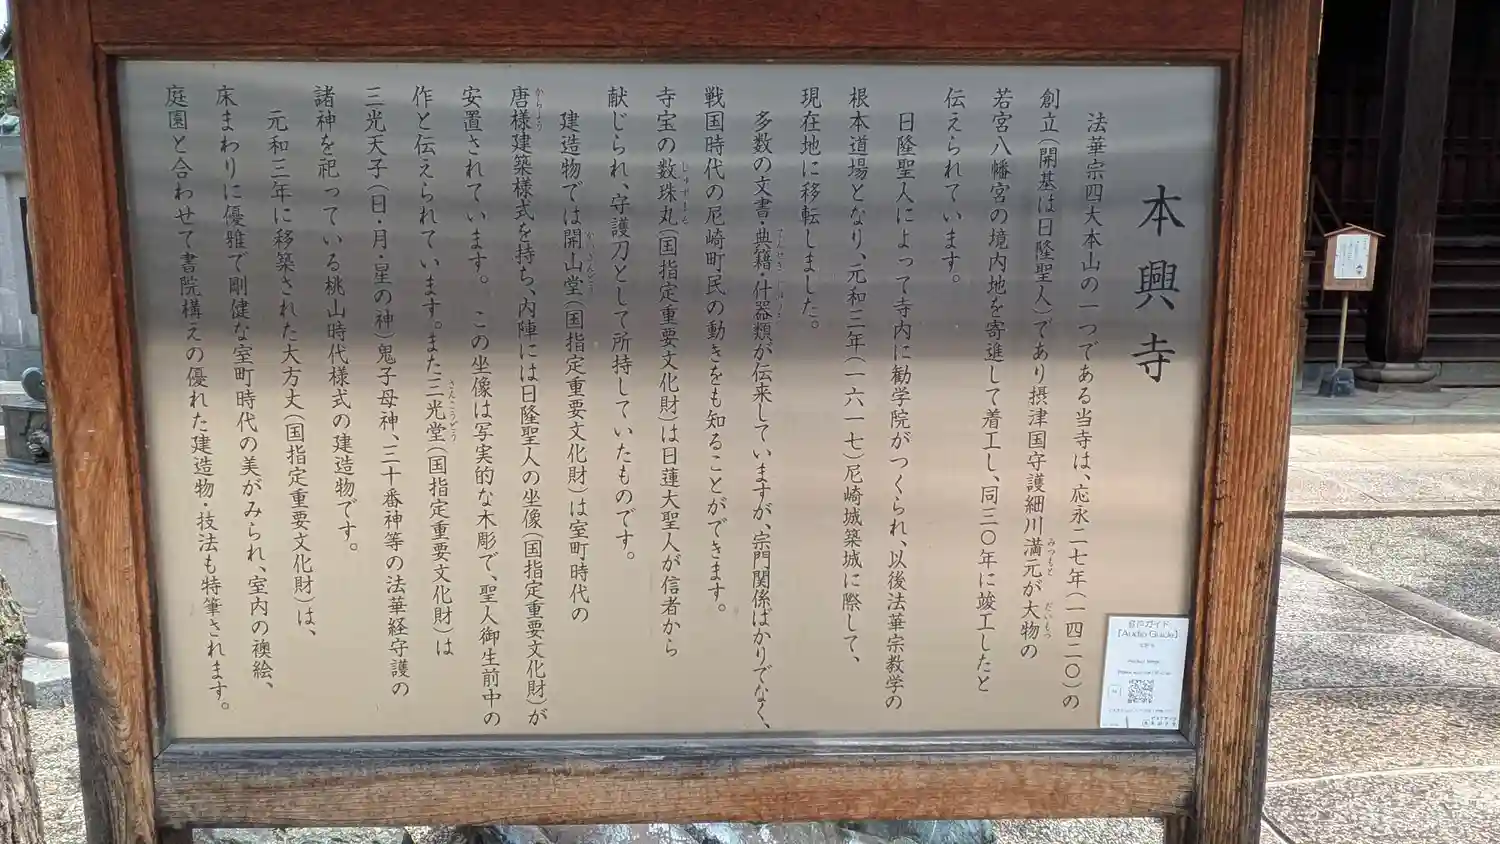 本興寺
法華宗四大本山の一つである当寺は、応永二七年(一四二〇)の
創立(開基は日隆聖人)であり摂津国守護細川満元が大物の
みつもと
だいもつ
若宮八幡宮の境内地を寄進して着工し、同三〇年に竣工したと
伝えられています。
日隆聖人によって寺内に勧学院がつくられ、以後法華宗教学の
根本道場となり、元和三年(一六一七)尼崎城築城に際して、
現在地に移転しました。
多数の文書・典籍・什器類が伝来していますが、宗門関係ばかりでなく、
てんせき
戦国時代の尼崎町民の動きをも知ることができます。
寺宝の数珠丸(国指定重要文化財)は日蓮大聖人が信者から
じゅずまる
献じられ、守護刀として所持していたものです。
建造物では開山堂(国指定重要文化財)は室町時代の
かいさんどう
唐様建築様式を持ち、内陣には日隆聖人の坐像(国指定重要文化財)が
からよう
安置されています。この坐像は写実的な木彫で、聖人御生前中の
作と伝えられています。また三光堂(国指定重要文化財)は
さんこうどう
三光天子(日・月・星の神)鬼子母神、三十番神等の法華経守護の
諸神を祀っている桃山時代様式の建造物です。
元和三年に移築された大方丈(国指定重要文化財)は、
床まわりに優雅で剛健な室町時代の美がみられ、室内の襖絵、
庭園と合わせて書院構えの優れた建造物・技法も特筆されます。
音声ガイド
[Audio Guide]